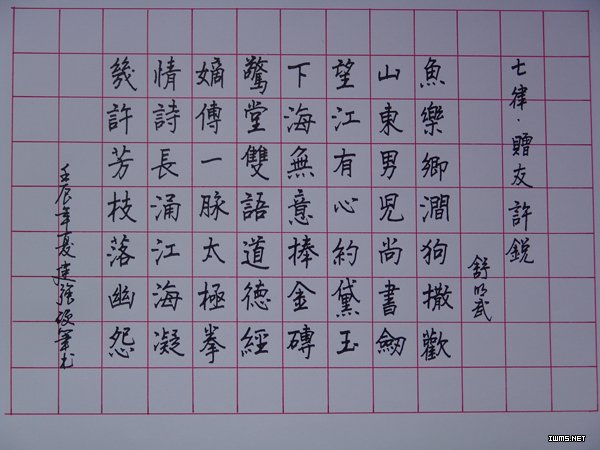 七律·贈友許銳
舒明武
魚樂鄉澗狗撒歡
山東男兒尚書劒
望江有心約黛玉
下海無意捧金磚
驚堂雙語道德經
嫡傳一脉太極拳
情詩長涌江海凝
幾許芳枝落幽怨
壬辰年夏建強硬筆書
IWMS.NET